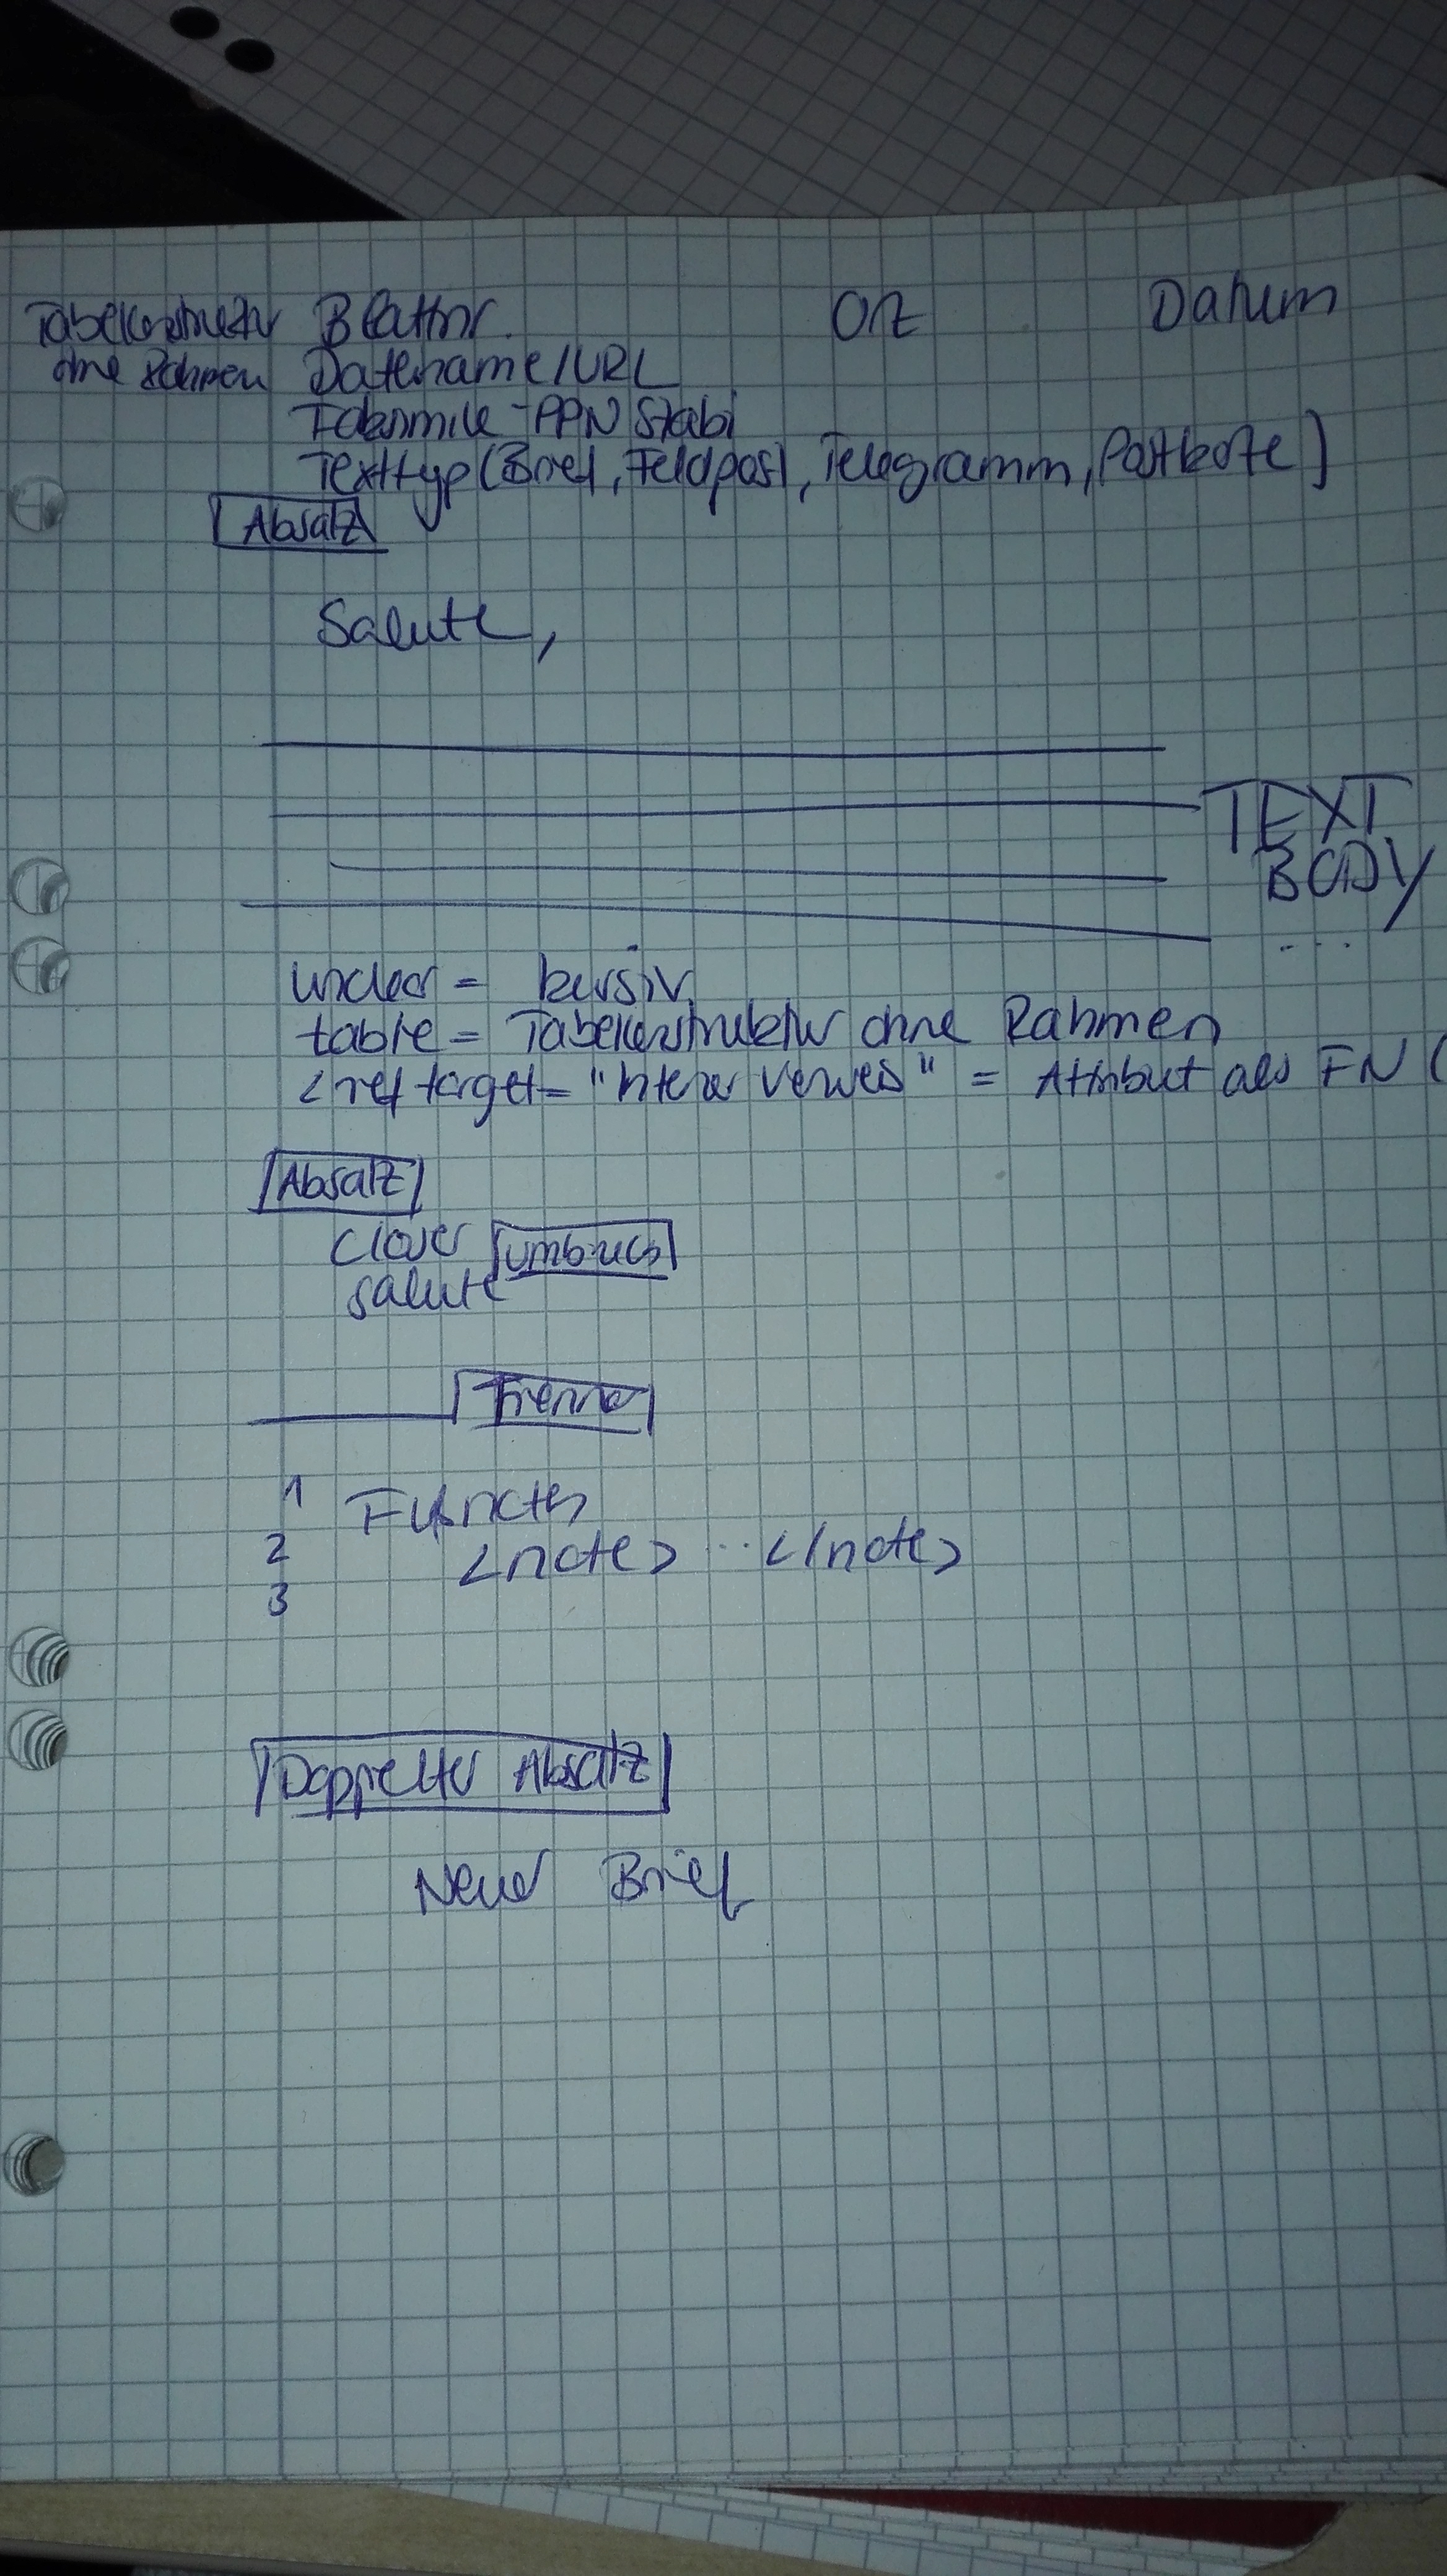 Tabellenstruktur Blattnr. Ort Datum
ohne Rahmen Dateiname/URL
Faksimile-PPN Stabi
Texttyp (Brief, Feldpost, Telegramm, Postkarte)
Absatz
Salute,
TEXT
BODY
...
unclear = kursiv
table = Tabellenstruktur ohne Rahmen
<ref target="interner Verweis" = Attribut als FN (
Absatz
Closer Umbruch
salute
Trenner
1 Fußnoten
2 <note> ... </note>
3
Doppelter Absatz
Neuer Brief